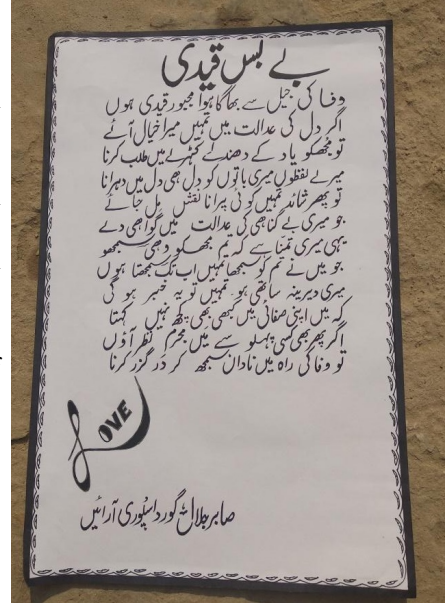 بے بس قیدی
وفا کی جیل سے بھاگا ہوا مجبور قیدی ہوں
اگر دل کی عدالت میں تمہیں میرا خیال آئے
تو مجھکو یاد کے دھندلے کٹہرے میں طلب کرنا
میرے لفظوں میری باتوں کو دل ھی دل میں دہرانا
تو پھر شائد تمہیں کوئی پرانا نقش مل جائے
جو میری بے گناھی کی عدالت میں گواھی دے
یہی میری تمنا ہے کہ تم مجھکو وھی سمجھو
جو میں نے تم کو سمجھا تمہیں اب تک سمجھتا ہوں
میری دیرینہ ساتھی ہو تمہیں تو یہ خبر ہو گی
کہ میں اپنی صفائی میں کبھی بھی کچھ نہیں کہتا
اگر پھر بھی کسی پہلو سے میں مجرم نظر آؤں
تو وفا کی راہ میں نادان سمجھ کر در گزر کرنا
LOVE
صابر جلال گورداسپوری آرائیں